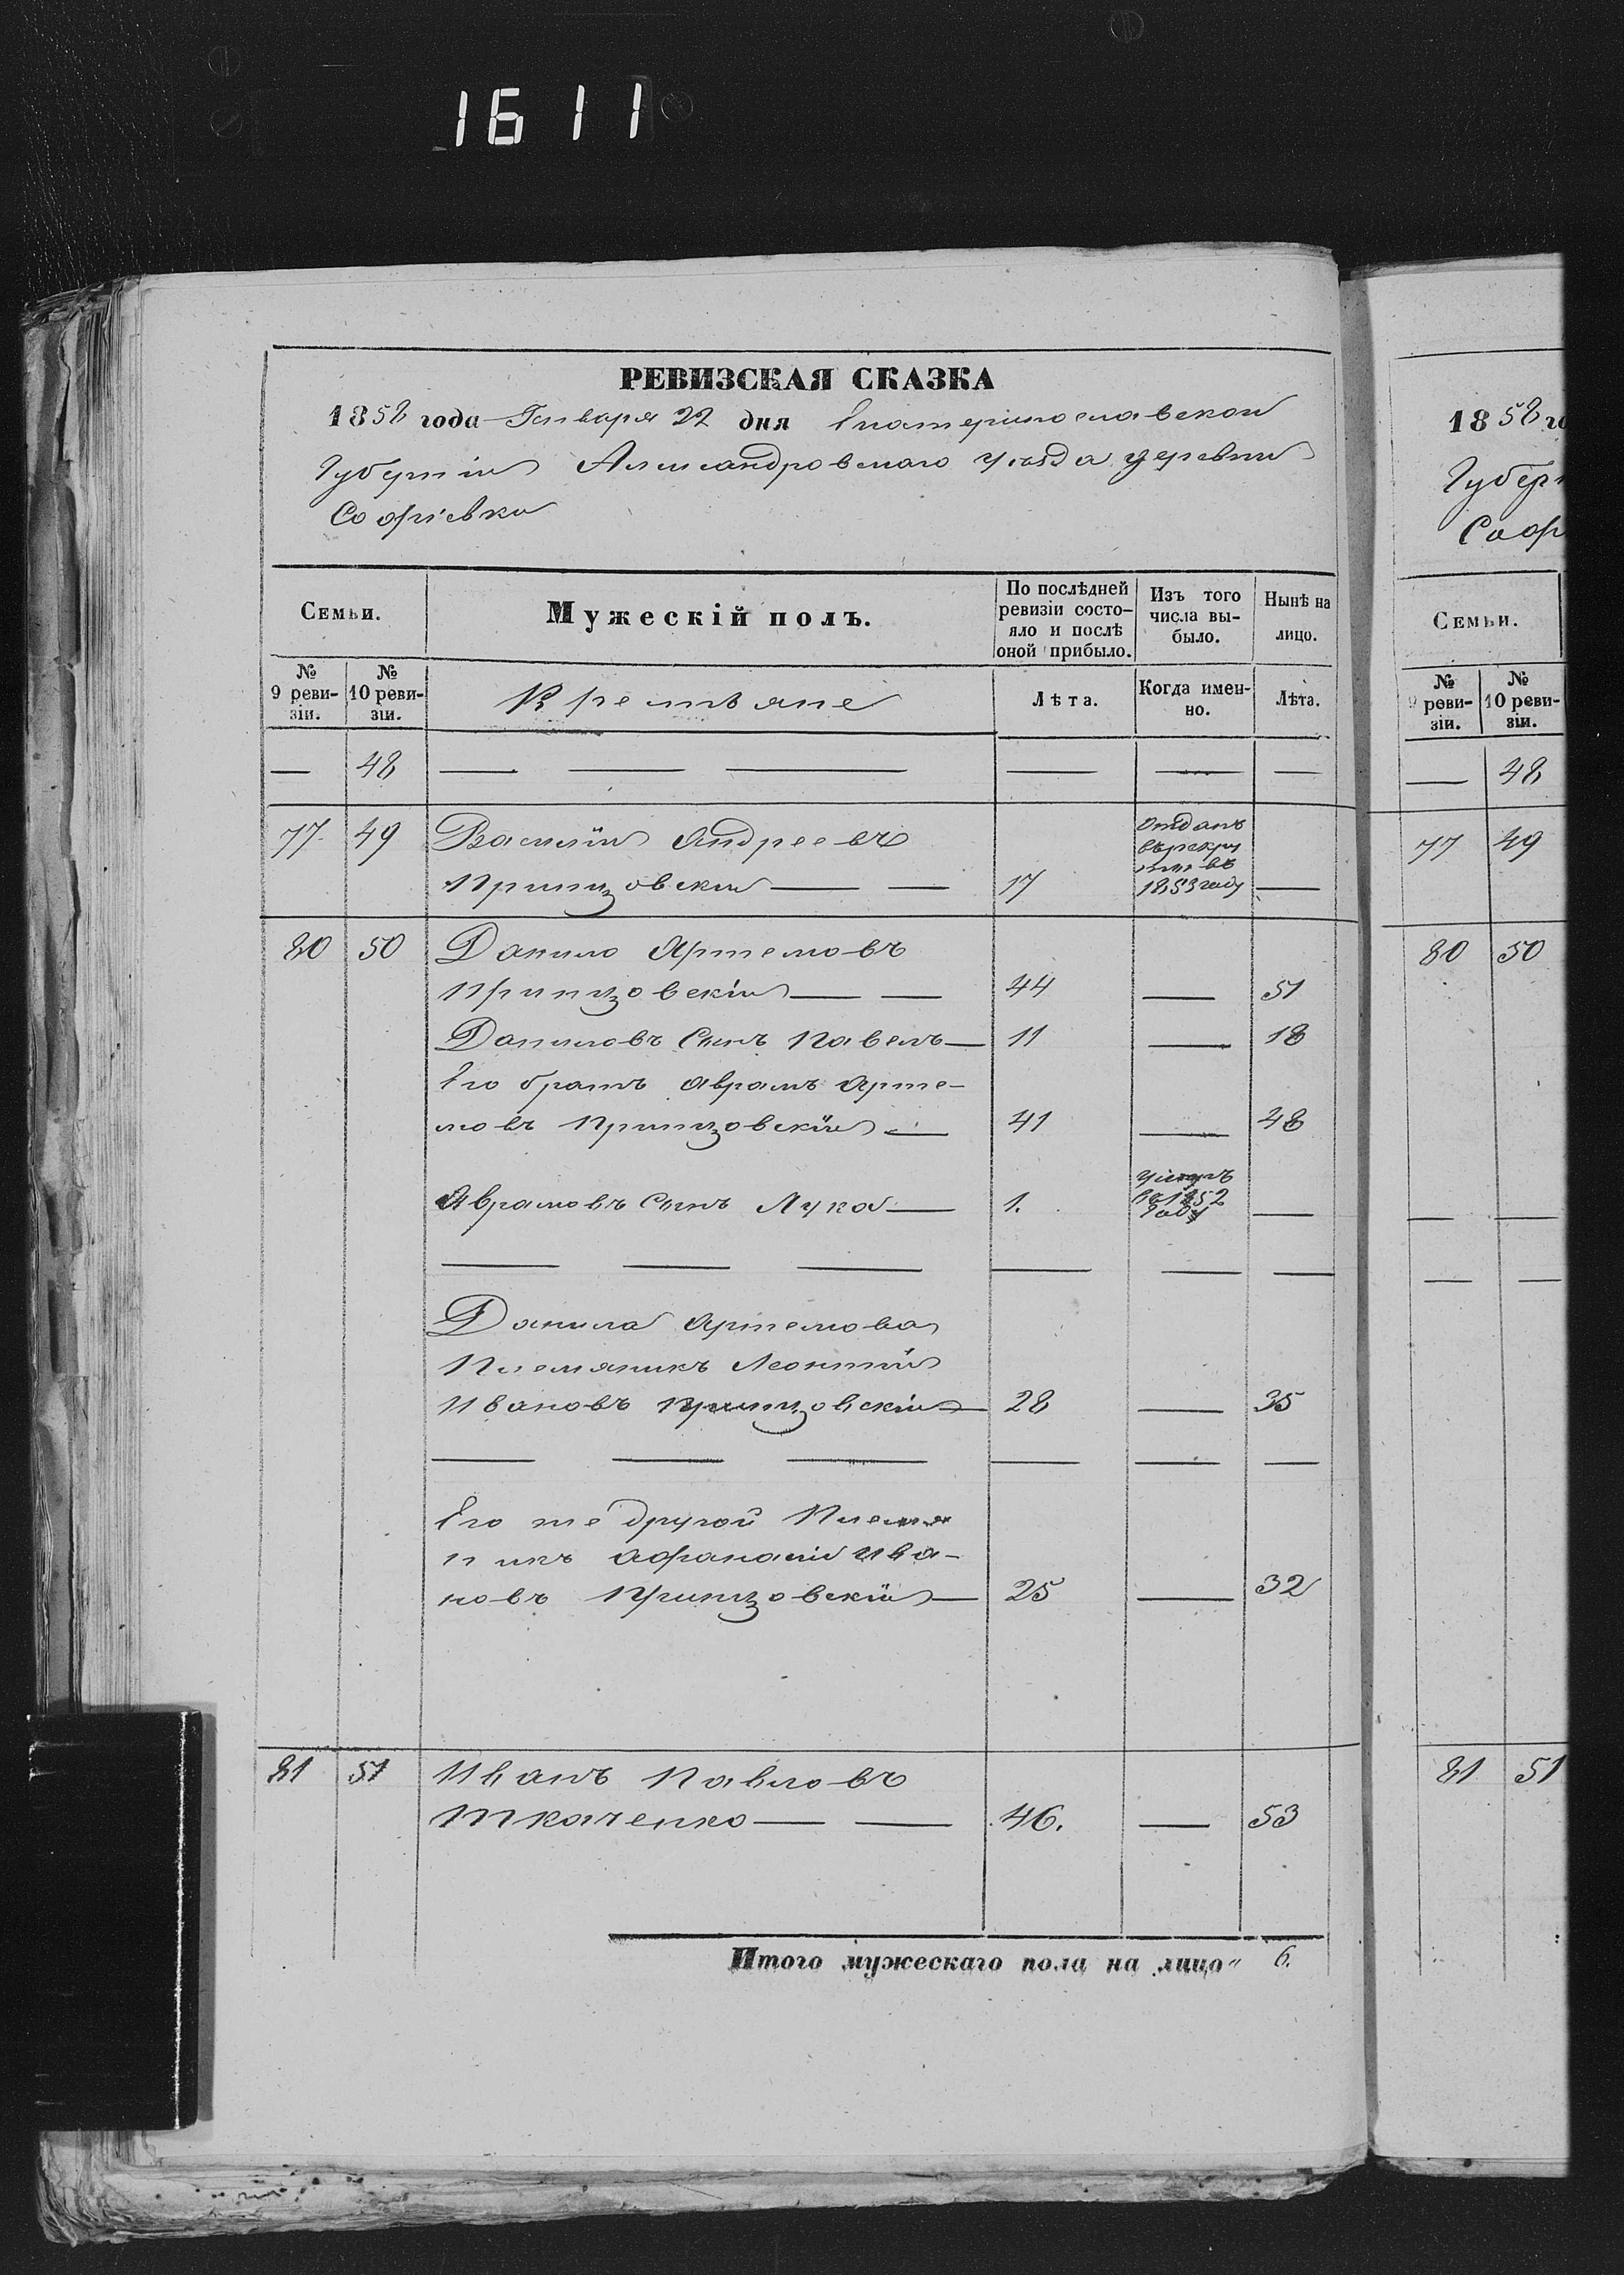 1611
РЕВИЗСКАЯ СКАЗКА
1858 года Генваря 22 дня Екатеринославской
Губерніи Александровскаго уѣзда деревни
Софіевки
Семьи.
Мужескій полъ.
По послѣдней ревизіи состояло и послѣ оной прибыло.
Изъ того числа выбыло.
Нынѣ на лицо.
№ 9 ревизіи.
№ 10 ревизіи.
Крестьяне
Лѣта.
Когда именно.
Лѣта.
— 48 — — — — — —
77 49 Василій Андреевъ
Принцовскій — — 17 Отданъ въ рекруты въ 1853 году —
80 50 Данило Артемовъ
Принцовскій — — 44 — 51
Даниловъ Сынъ Павелъ — 11 — 18
Его братъ Аврамъ Арте-
мовъ Принцовскій — 41 — 48
Аврамовъ Сынъ Лука — 1. умеръ въ 1852 году —
— — — — — —
Данила Артемова
Племяникъ Леонтій
Ивановъ Принцовскій — 28 — 35
— — — — — —
Его же другой Племя
никъ Афанасій Ива-
новъ Принцовскій — 25 — 32
81 51 Иванъ Павловъ
Ткаченко — — 46. — 53
Итого мужескаго пола на лицо 6.
1858 го
Губер
Соф
Семьи.
№ 9 ревизіи.
№ 10 ревизіи.
— 48
77 49
80 50
— —
— —
81 51